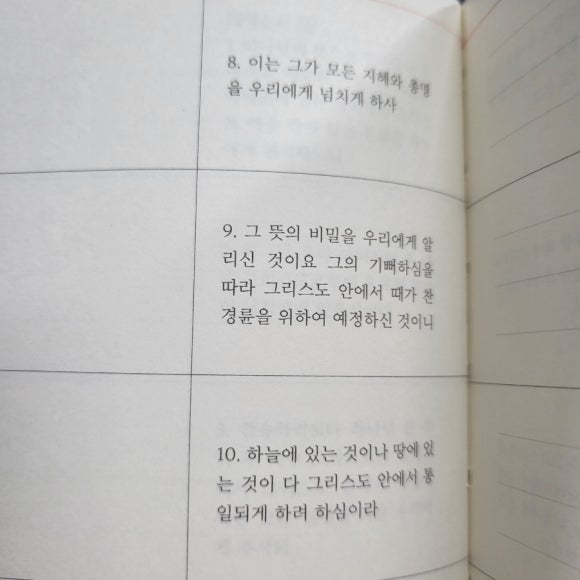 8. 이는 그가 모든 지혜와 총명
을 우리에게 넘치게 하사
9. 그 뜻의 비밀을 우리에게 알
리신 것이요 그의 기뻐하심을
따라 그리스도 안에서 때가 찬
경륜을 위하여 예정하신 것이니
10. 하늘에 있는 것이나 땅에 있
는 것이 다 그리스도 안에서 통
일되게 하려 하심이라